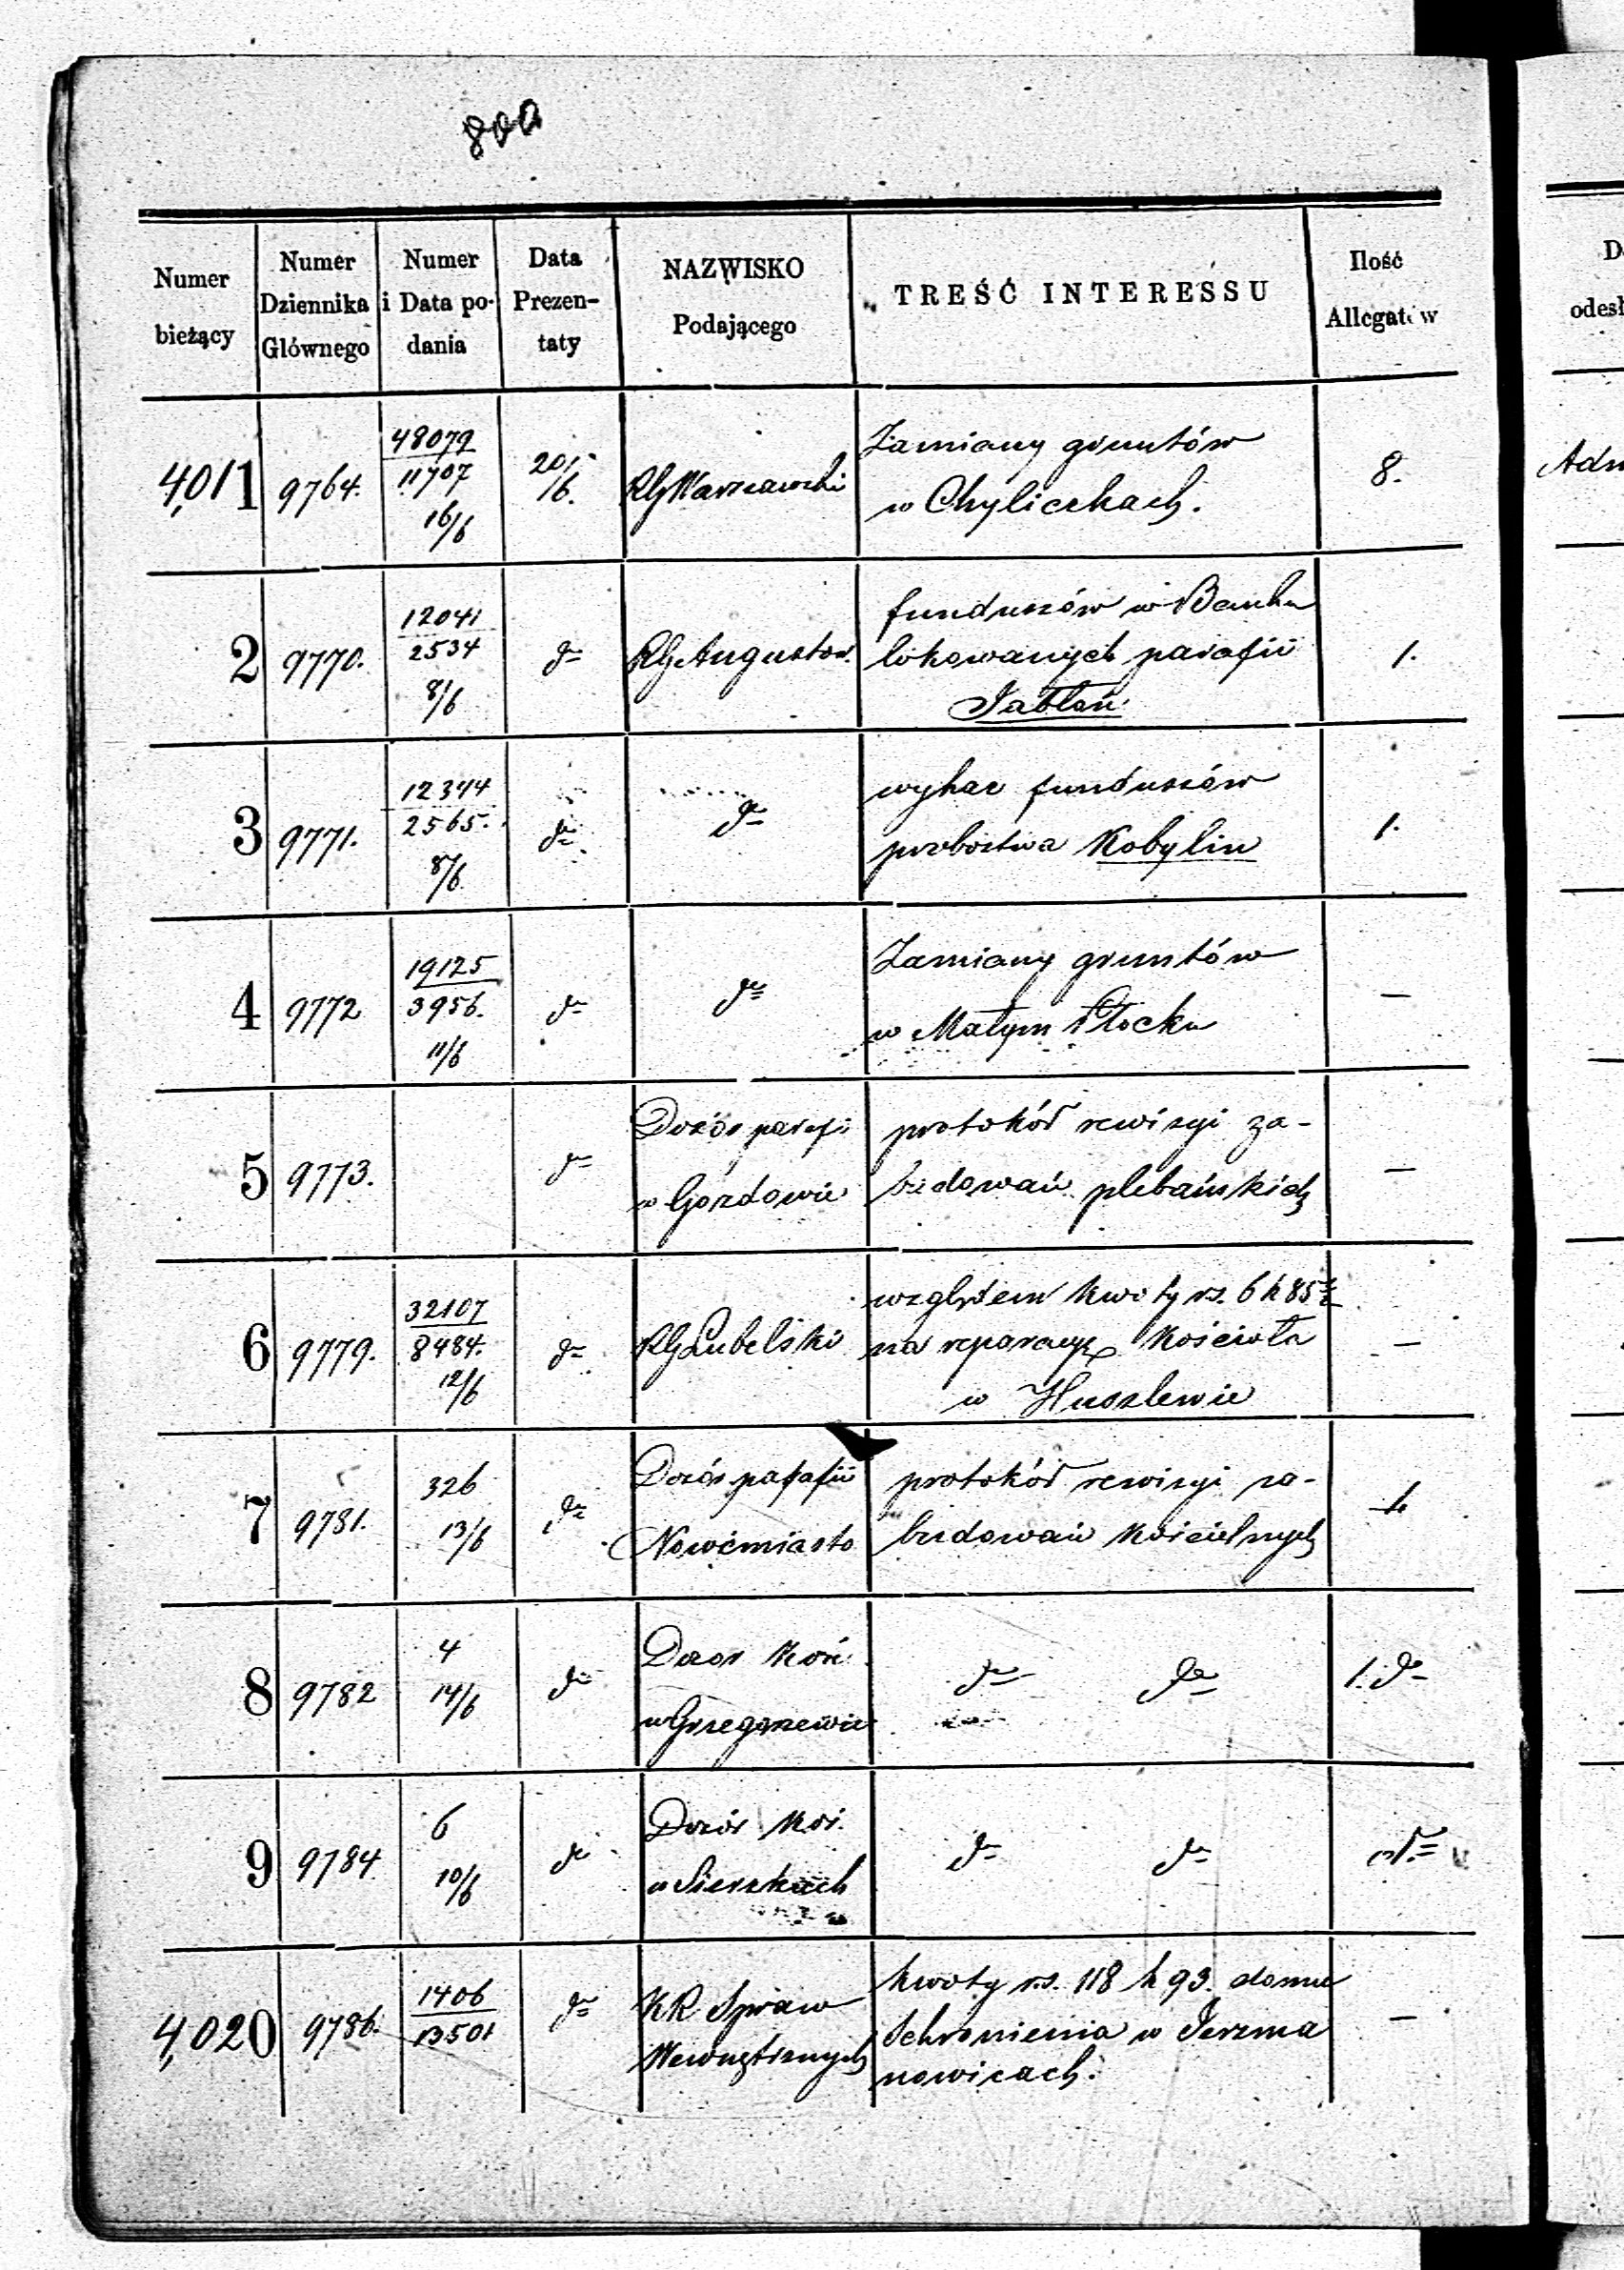 800
Numer bieżący | Numer Dziennika Głównego | Numer i Data podania | Data Prezentaty | NAZWISKO Podającego | TREŚĆ INTERESSU | Ilość Allegatów
4,011 | 9764. | 48079 / 11707 16/6 | 20/6. | RG Warszawski | Zamiany gruntów
w Chyliczkach. | 8.
2 | 9770. | 12041 / 2534 8/6 | do | RG Augustow. | funduszów w Banku
lokowanych parafii
Jabłoń. | 1.
3 | 9771. | 12344 / 2565. 8/6 | do | do | wykaz funduszów
probostwa Kobylin | 1.
4 | 9772 | 19125 / 3956. 11/6 | do | do | Zamiany gruntów
w Małym Płocku | —
5 | 9773. | | do | Dozór parafi
w Gozdowie | protokół rewizyi za-
budowań plebańskich | —
6 | 9779. | 32107 / 8484. 12/6 | do | RG Lubelski | względem kwoty rs. 6 k 85½
na reparacyę Kościoła
w Huszlewie | —
7 | 9781. | 326 13/6 | do | Dozór parafii
Nowemiasto | protokół rewizyi za-
budowań kościelnych
8 | 9782 | 4 14/6 | do | Dozor Koś.
w Grzegorzewie | do do | 1. do
9 | 9784 | 6 10/6 | do | Dozór Koś.
w Sierzkach | do do
4,020 | 9786. | 1406 / 13501 | do | KR. Spraw
Wewnętrznych | kwoty rs. 118 k 93. domu
Schronienia w Jerzma
nowicach. | —
D
odesł
Adm